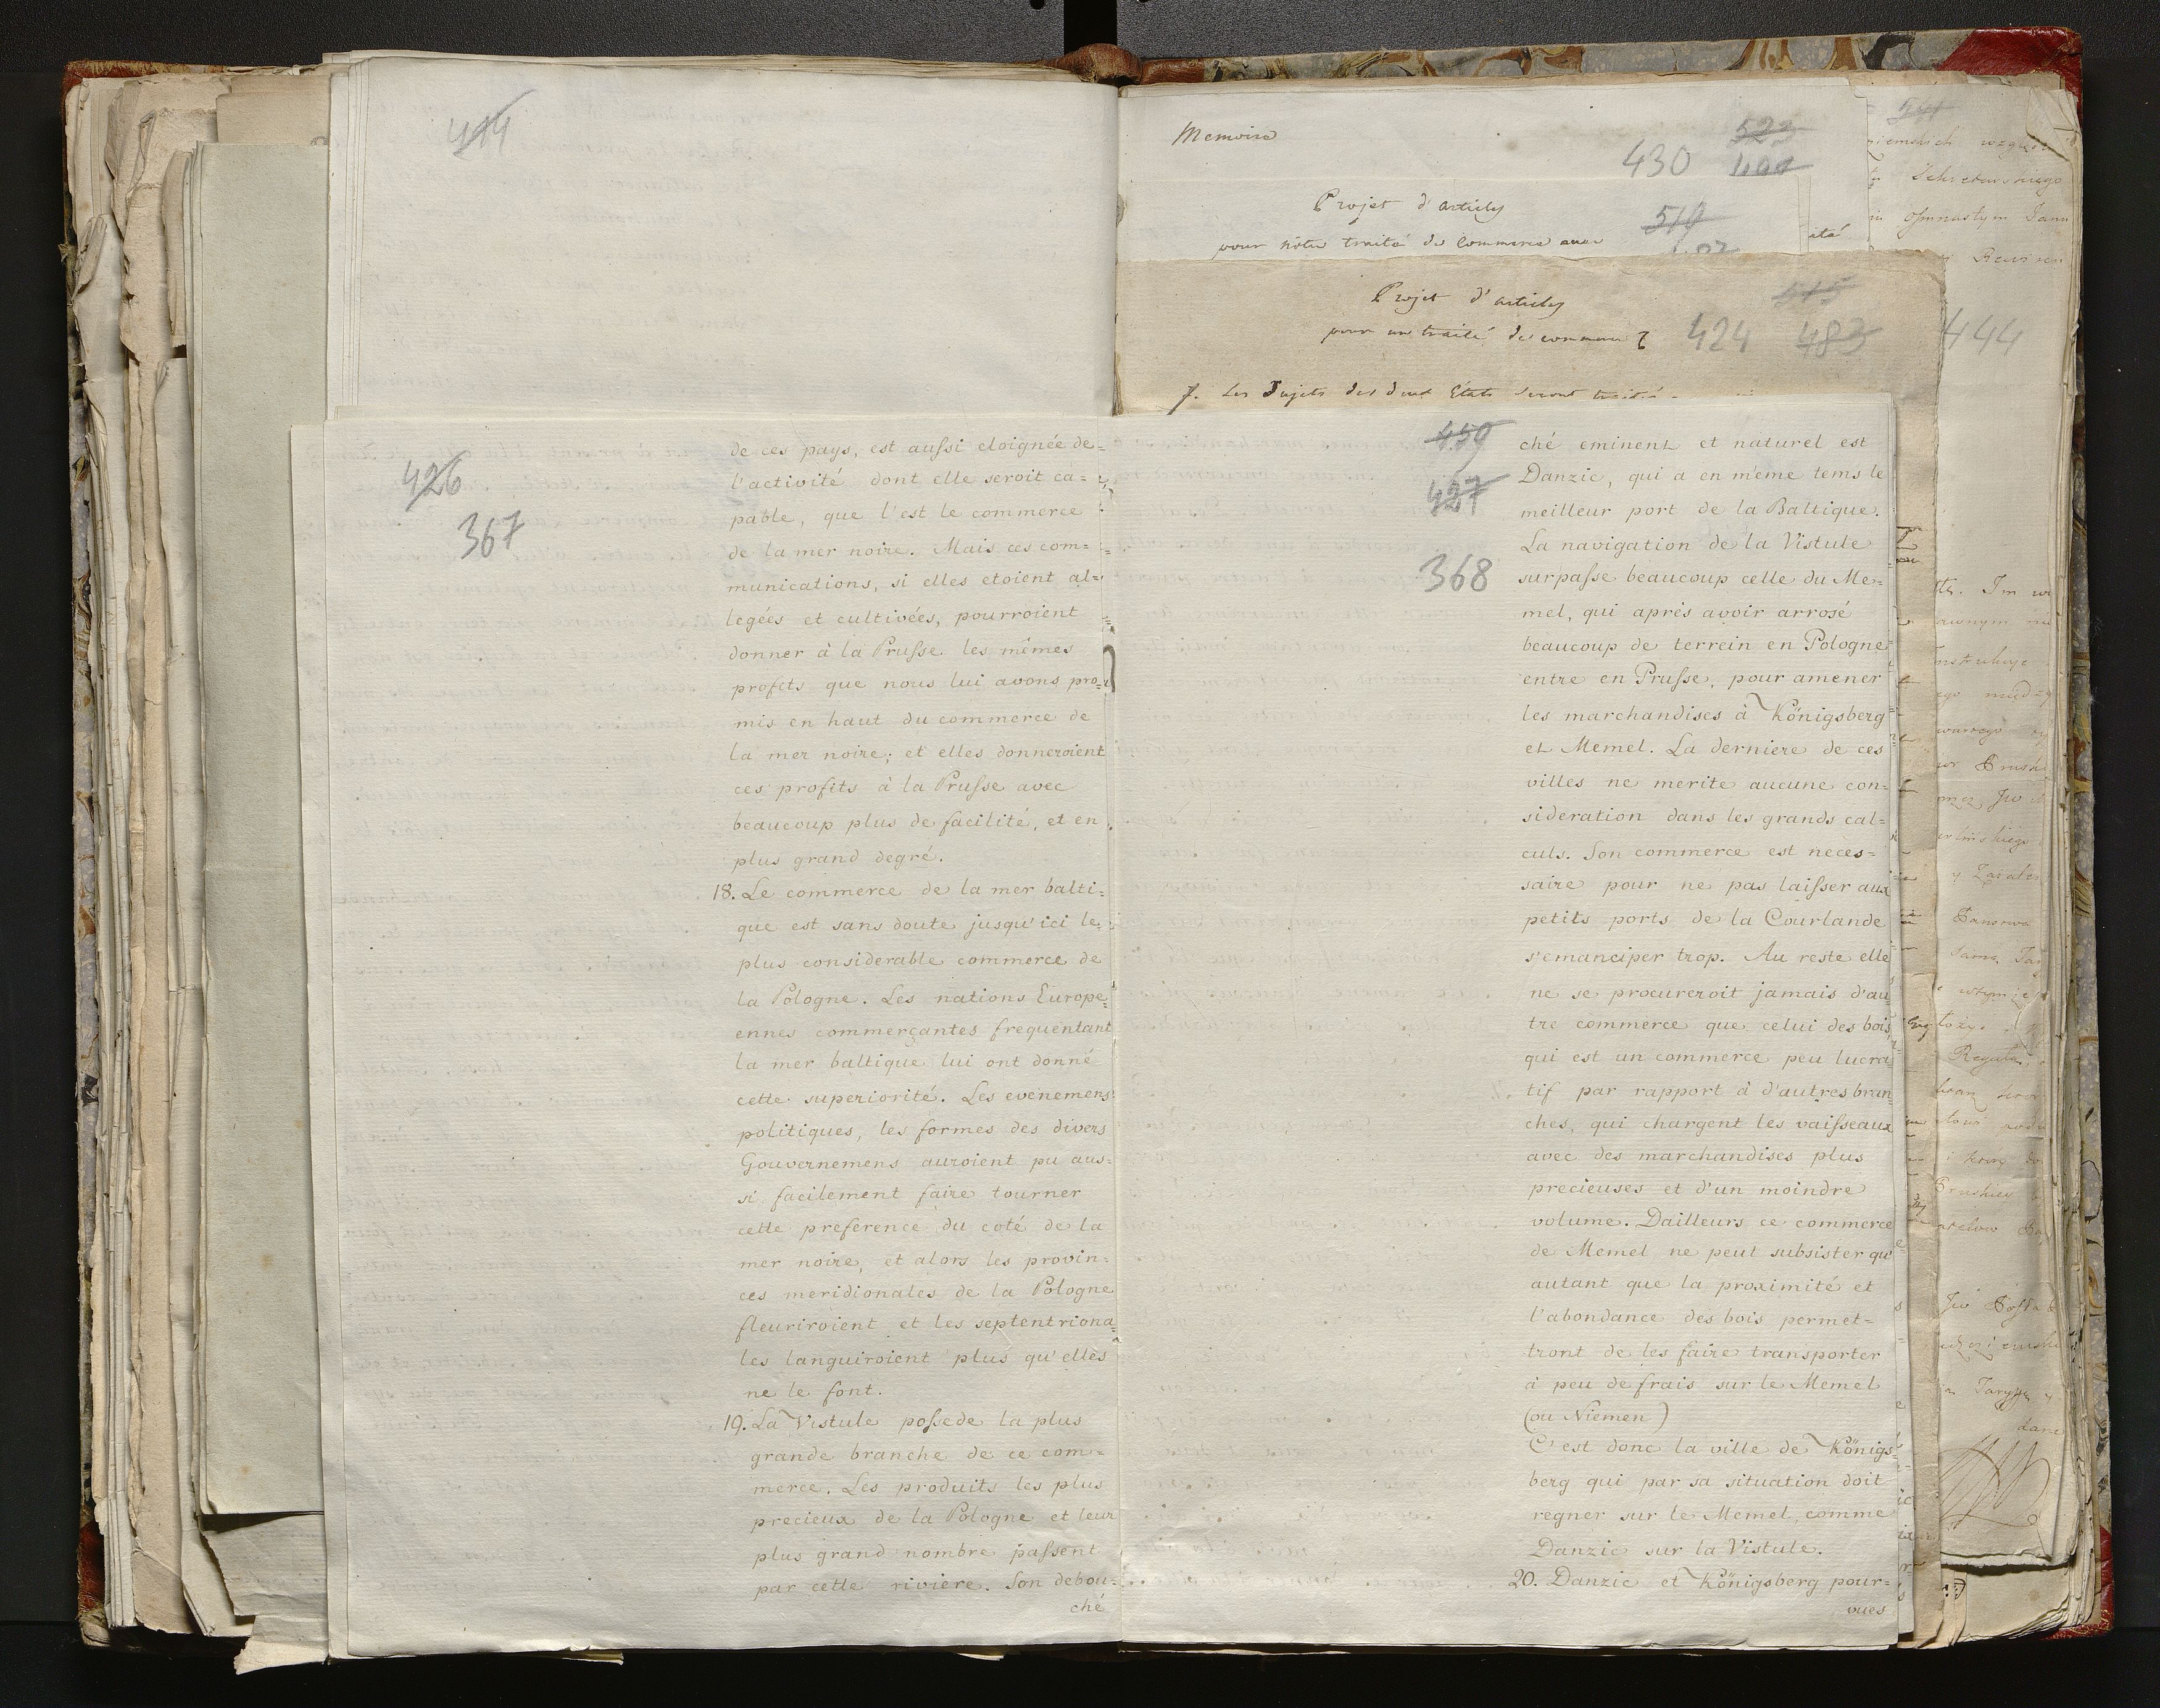 414
426
367
de ces pays, est aussi eloignée de=
l'activité dont elle seroit ca=
pable, que l'est le commerce
de la mer noire. Mais ces com=
munications, si elles etoient al=
legées et cultivées, pourroient
donner à la Prusse les mêmes
profits que nous lui avons pro=
mis en haut du commerce de
la mer noire; et elles donneroient
ces profits à la Prusse avec
beaucoup plus de facilité, et en
plus grand degré.
18. Le commerce de la mer balti=
que est sans doute jusqu'ici le
plus considerable commerce de
la Pologne. Les nations Europe
ennes commerçantes frequentant
la mer baltique lui ont donné
cette superiorité. Les evenemens
politiques, les formes des divers
Gouvernemens auroient pu aus=
si facilement faire tourner
cette preference du coté de la
mer noire, et alors les provin=
ces meridionales de la Pologne
fleuriroient et les septentriona=
les languiroient plus qu'elles
ne le font.
19. La Vistule possede la plus
grande branche de ce com=
merce. Les produits les plus
precieux de la Pologne et leur
plus grand nombre passent
par cette riviere. Son debou=
ché
Memoire
523
430
Projet d'articles
510
pour nôtre traité de Commerce avec
Projet d'articles
515
pour un traité de commerce
424 483
7. Les Sujets des deux Etats seront
444
459
427
368
ché eminent et naturel est
Danzic, qui a en même tems le
meilleur port de la Baltique.
La navigation de la Vistule
surpasse beaucoup celle du Me=
mel, qui après avoir arrosé
beaucoup de terrein en Pologne
entre en Prusse, pour amener
les marchandises à Königsberg
et Memel. La derniere de ces
villes ne merite aucune con=
sideration dans les grands cal=
culs. Son commerce est neces=
saire pour ne pas laisser aux
petits ports de la Courlande
s'emanciper trop. Au reste elle
ne se procureroit jamais d'au
tre commerce que celui des bois,
qui est un commerce peu lucra
tif par rapport à d'autres bran
ches, qui chargent les vaisseaux
avec des marchandises plus
precieuses et d'un moindre
volume. Dailleurs ce commerce
de Memel ne peut subsister qu'
autant que la proximité et
l'abondance des bois permet=
tront de les faire transporter
à peu de frais sur le Memel
(ou Niemen)
C'est donc la ville de Königs=
berg qui par sa situation doit
regner sur le Memel, comme
Danzic sur la Vistule.
20. Danzic et Königsberg pour=
vues